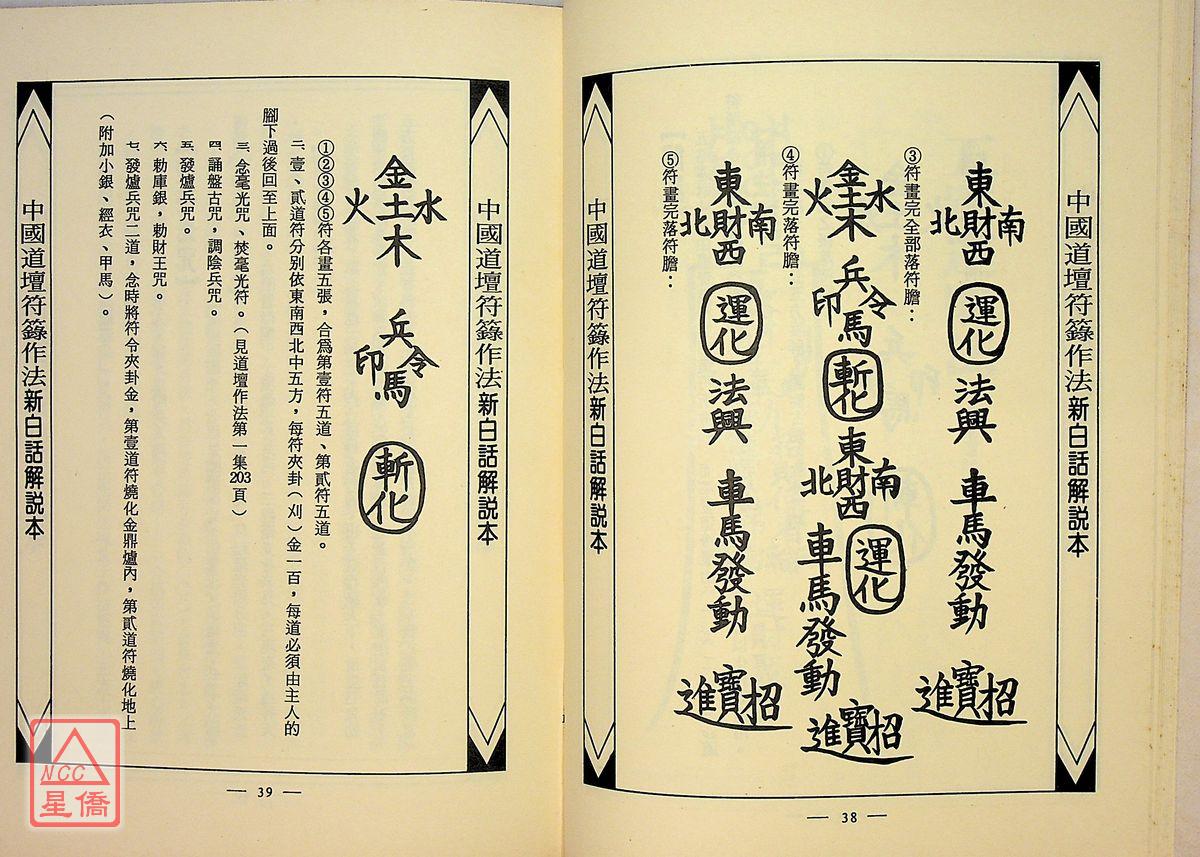 中國道壇符籙作法新白話解說本
東
北財南
西
運化
法興
車馬發動
進寶招
③符畫完全部落符膽：
金
火土水
木
兵
印令
馬
斬化
東
北財南
西
運化
車馬發動
進寶招
④符畫完落符膽：
東
北財南
西
運化
法興
車馬發動
進寶招
⑤符畫完落符膽：
中國道壇符籙作法新白話解說本
— 38 —
中國道壇符籙作法新白話解說本
金
火土水
木
兵
印令
馬
斬化
①②③④⑤符各畫五張，合為第壹符五道、第貳符五道。
二、壹、貳道符分別依東南西北中五方，每符夾卦（刈）金一百，每道必須由主人的
腳下過後回至上面。
三、念毫光咒、焚毫光符。（見道壇作法第一集203頁）
四、誦盤古咒，調陰兵咒。
五、發爐兵咒。
六、勅庫銀，勅財王咒。
七、發爐兵咒二道，念時將符令夾卦金，第壹道符燒化金鼎爐內，第貳道符燒化地上
（附加小銀、經衣、甲馬）。
中國道壇符籙作法新白話解說本
— 39 —
NCC
星僑